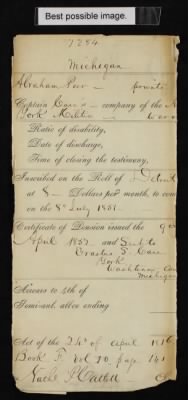 Best possible image.
7254
Michigan
Abraham Poor
Captain company of the N
York Militia War
Ratio of disability,
Date of discharge,
Time of closing the testimony,
Inscribed on the Roll of Detroit
at 8 Dollars per month, to com
on the 8th July 1851
Certificate of Pension issued the 9
April 1857 and Sent to
Erastus S.
York
Washtenaw
Michigan
Arrears to 4th of
Semi-anl. allce ending
Act of the 24th of April 1816
Book F Vol 10 page 161